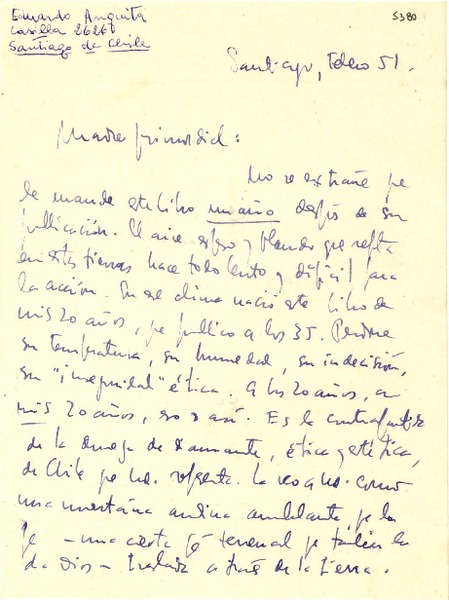 Eduardo Anguita
Casilla 2626
Santiago de Chile
5380
Santiago, Febrero 51.
Madre primordial:
No se extrañe que
le mande este libro un año después de su
publicación. El aire espeso y blando que
en estas tierras hace todo lento y difícil para
la acción. En ese clima nació este libro de
mis 20 años, que publico a los 35. Perdone
su temperatura, su humedad, su indecisión,
su "inseguridad" ética. A los 20 años, a
mis 20 años, eso es así. Es la contraparte
de la de diamante, ética y estética,
de Chile que Ud. representa. La veo a Ud. como
una montaña andina ambulante, por la
fe - una cierta fe terrenal que también la
da Dios - trabada a través de la tierra.